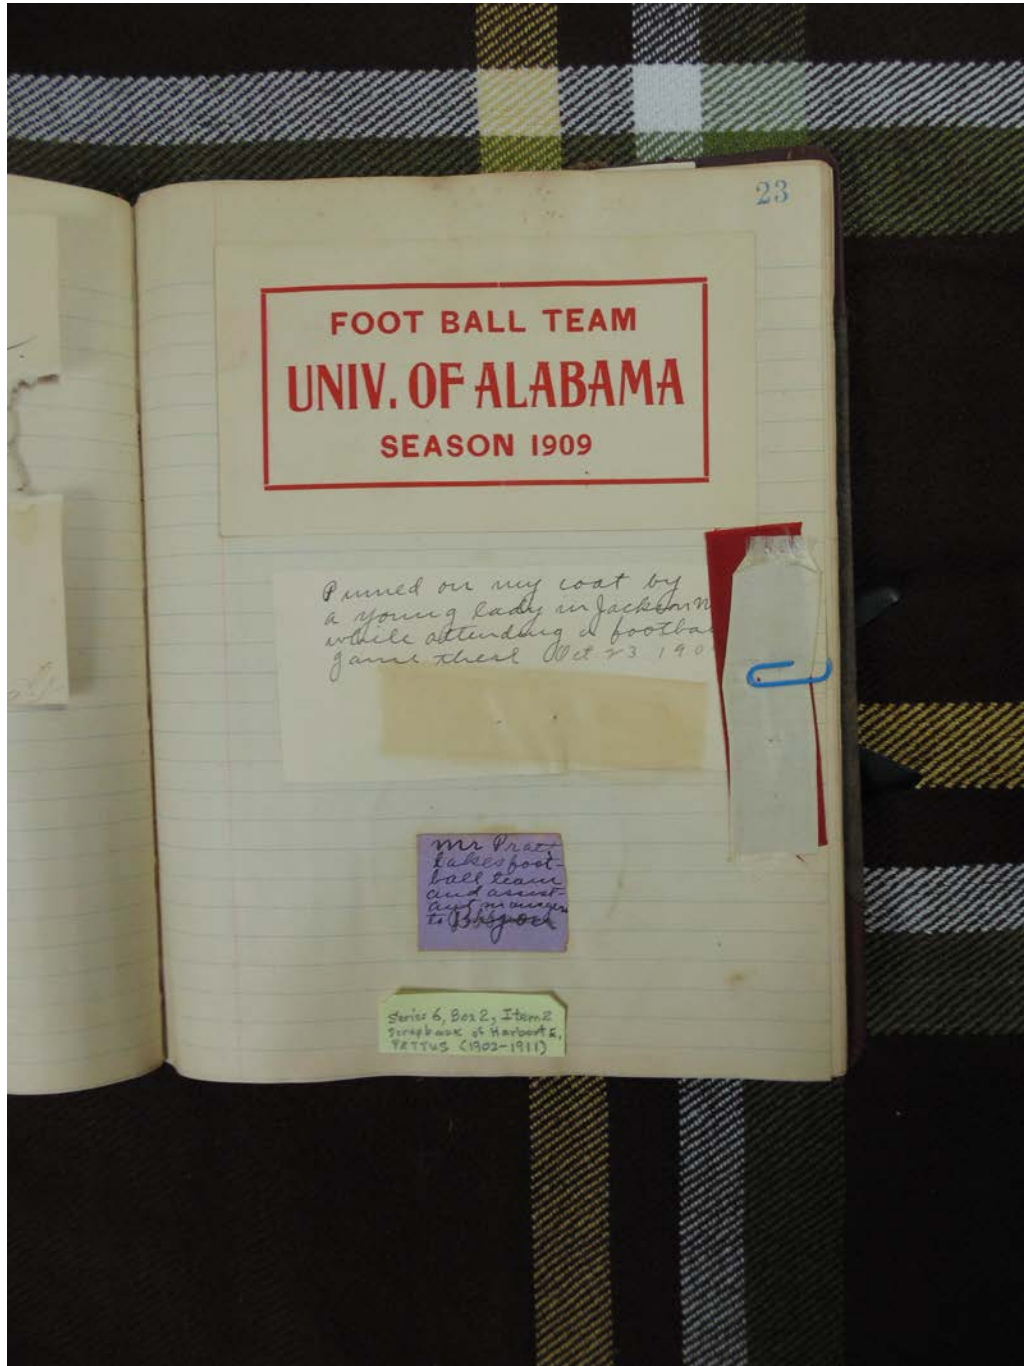 23
FOOT BALL TEAM
UNIV. OF ALABAMA
SEASON 1909
Pinned on my coat by
a young lady in Jackson
while attending a footba
game there Oct 23 190
Mr Prat
takes foot-
ball team
and assist-
ant manager
to
Series 6, Box 2, Item 2
Scrapbook of Harbert E.
PETTUS (1902-1911)